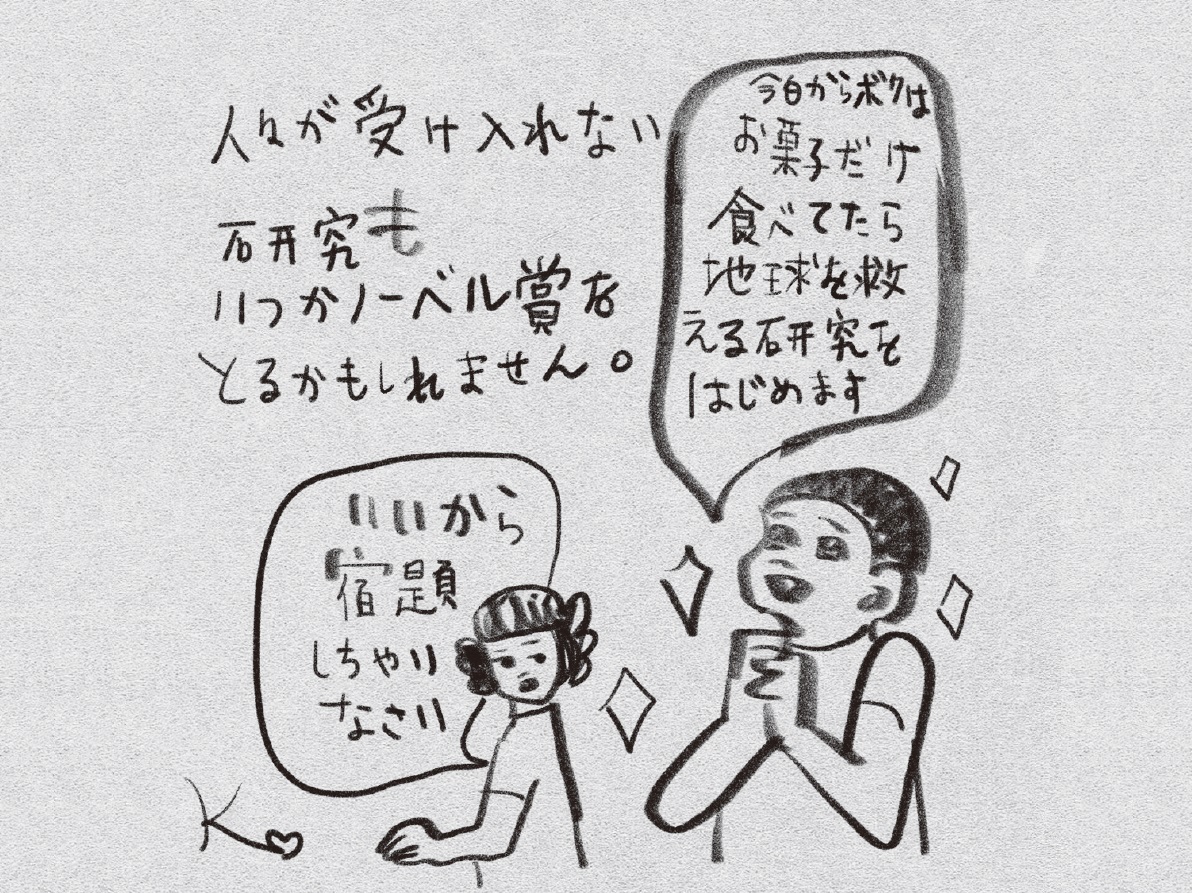 人々が受け入れない
研究も
いつかノーベル賞を
とるかもしれません。
今日からボクは
お菓子だけ
食べてたら
地球を救
える研究を
はじめます
いいから
宿題
しちゃい
なさい
K